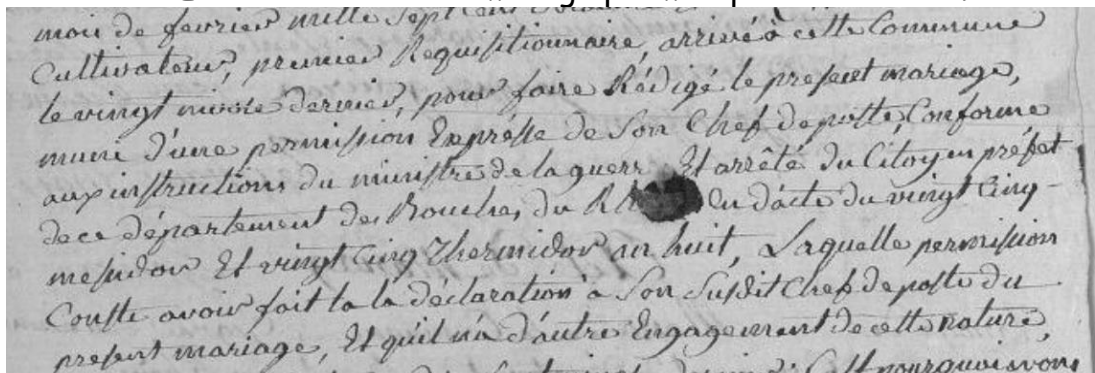 mois de fevrier mille Sept Cens
Cultivateur, premier Requisitionnaire, arrivé à cette Commune
le vingt nivose dernier, pour faire Rédigé le present mariage,
muni d'une permission Expresse de Son Chef de poste, Conforme
aux instructions du ministre de la guerre Et arrêté du Citoyen préfet
de ce département des Bouches du en dâcte du vingt Cinq
messidor Et vingt Cinq Thermidor an huit, Laquelle permission
Conste avoir fait la la déclaration à Son Susdit Chef de poste du
present mariage, Et qu'il n'a d'autre Engagement de cette nature,
C'est pourquoi avons